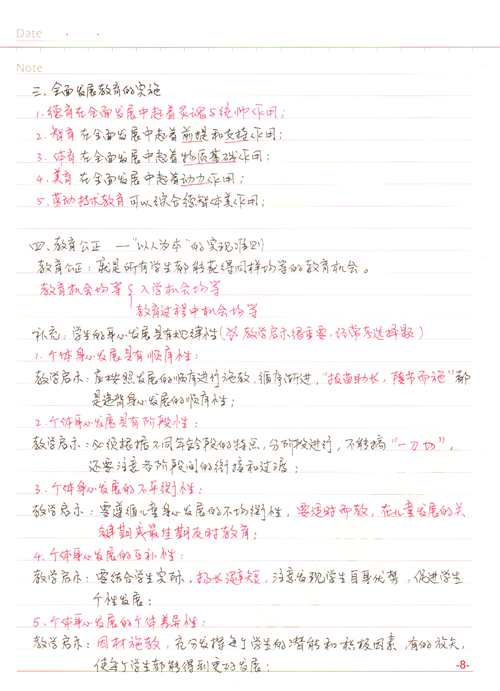 Date
Note
三. 全面发展教育的实施
1. 德育在全面发展中起着灵魂与统帅作用;
2. 智育在全面发展中起着前提和支撑作用;
3. 体育在全面发展中起着物质基础作用;
4. 美育在全面发展中起着动力作用;
5. 劳动技术教育可以综合德智体美作用;
四. 教育公正 —"以人为本"的实现准则
教育公正: 就是所有学生都能获得同样均等的教育机会。
教育机会均等{入学机会均等
教育过程中机会均等
补充: 学生的身心发展具有规律性(※ 教学启示很重要, 经常考选择题)
1. 个体身心发展具有顺序性:
教学启示: 应按照发展的顺序进行施教, 循序渐进, "拔苗助长, 陵节而施"都
是违背身心发展的顺序性;
2. 个体身心发展具有阶段性:
教学启示: 必须根据不同年龄段的特点, 分阶段进行, 不能搞"一刀切",
还要注意各阶段间的衔接和过渡;
3. 个体身心发展的不平衡性:
教学启示: 要遵循儿童身心发展的不均衡性, 要适时而教, 在儿童发展的关
键期或最佳期及时教育;
4. 个体身心发展的互补性:
教学启示: 要结合学生实际, 扬长避短, 注意发现学生自身优势, 促进学生
个性发展;
5. 个体身心发展的个体差异性:
教学启示: 因材施教, 充分发挥每个学生的潜能和积极因素, 有的放矢,
使每个学生都能得到更好发展;
-8-